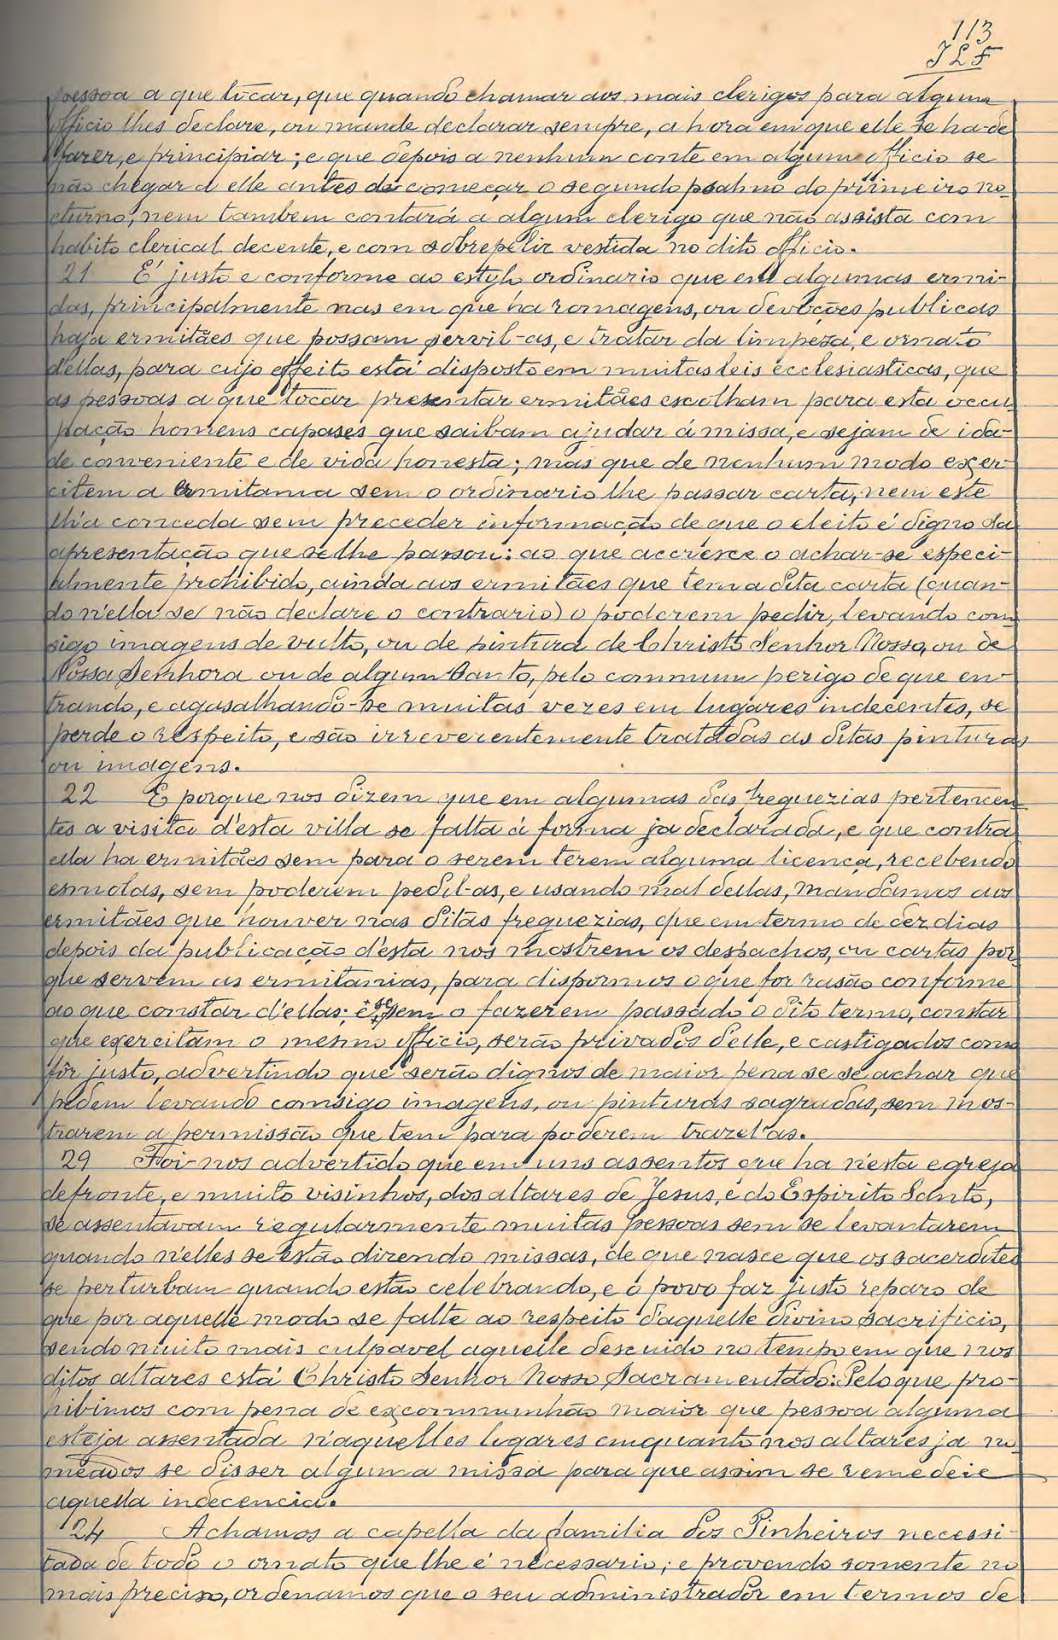 113
JLF
pessoa a que tocar, que quando chamar aos mais clerigos para algum
officio lhes declare, ou mande declarar sempre, a hora em que elle se ha-de
fazer, e principiar; e que depois a nenhum conte em algum officio se
não chegar a elle antes de começar o segundo psalmo do primeiro no-
cturno; nem tambem contará a algum clerigo que não assista com
habito clerical decente, e com sobrepeliz vestida no dito officio.
21 É justo e conforme ao estylo ordinario que em algumas ermi-
das, principalmente nas em que ha romagens, ou devoções publicas
haja ermitães que possam servil-as, e tratar da limpesa, e ornato
dellas, para cujo effeito está disposto em muitas leis ecclesiasticas, que
as pessoas a que tocar presentar ermitães escolham para esta occu-
pação homens capases que saibam ajudar á missa, e sejam de ida-
de conveniente e de vida honesta; mas que de nenhum modo exer-
citem a ermitania sem o ordinario lhe passar carta, nem este
lh'a conceda sem preceder informação de que o eleito é digno da
apresentação que se lhe passou: ao que accresce o achar-se especi-
almente prohibido, ainda aos ermitães que tem a dita carta (quan-
do n'ella se não declare o contrario) o poderem pedir, levando com-
sigo imagens de vulto, ou de pintura de Christo Senhor Nosso, ou de
Nossa Senhora ou de algum Santo, pelo commum perigo de que en-
trando, e agasalhando-se muitas vezes em lugares indecentes, se
perde o respeito, e são irreverentemente tratadas as ditas pinturas
ou imagens.
22 E porque nos dizem que em algumas das freguezias pertencen-
tes a visita d'esta villa se falta á forma ja declarada, e que contra
ella ha ermitães sem para o serem terem alguma licença, recebendo
esmolas, sem poderem pedil-as, e usando mal dellas, mandâmos aos
ermitães que houver nas ditas freguezias, que em termo de dez dias
depois da publicação d'esta nos mostrem os despachos, ou cartas por
que servem as ermitanias, para dispormos o que for rasão conforme
ao que constar d'ellas; e se sem o fazerem passado o dito termo, constar
que exercitam o mesmo officio, serão privados delle, e castigados como
fôr justo, advertindo que serão dignos de maior pena se se achar que
pedem levando comsigo imagens, ou pinturas sagradas, sem mos-
trarem a permissão que tem para poderem trazel'as.
29 Foi-nos advertido que em uns assentos que ha n'esta egreja
defronte, e muito visinhos, dos altares de Jesus, e do Espirito Santo,
se assentavam regularmente muitas pessoas sem se levantarem
quando n'elles se estão dizendo missas, de que nasce que os sacerdotes
se perturbam quando estão celebrando, e o povo faz justo reparo de
que por aquelle modo se falte ao respeito daquelle divino sacrificio,
sendo muito mais culpavel aquelle descuido no tempo em que nos
ditos altares está Christo Senhor Nosso Sacramentado: Pelo que pro-
hibimos com pena de excommunhão maior que pessoa alguma
esteja assentada n'aquelles logares emquanto nos altares ja no-
meados se disser alguma missa para que assim se remedeie
aquella indecencia.
24 Achamos a capella da familia dos Pinheiros necessi-
tada de todo o ornato que lhe é necessario; e provendo somente no
mais preciso, ordenamos que o seu administrador em termos de